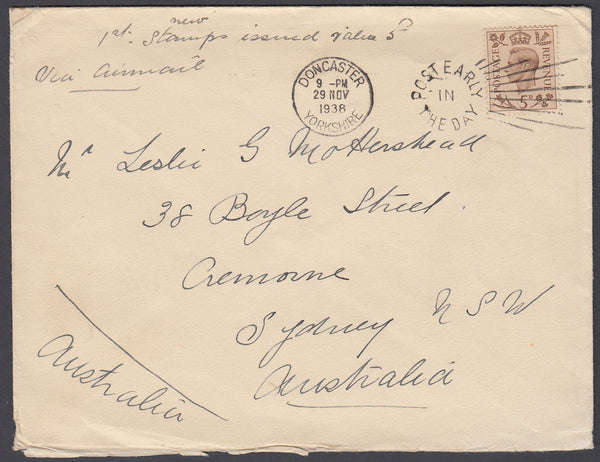 1st new Stamps issued value 5D
Via Airmail
DONCASTER
9 - PM
29 NOV
1938
YORKSHIRE
POST EARLY
IN
THE DAY
POSTAGE
REVENUE
5D
Mr Leslie G Mothershead
38 Boyle Street
Cremorne
Sydney NSW
Australia
Australia